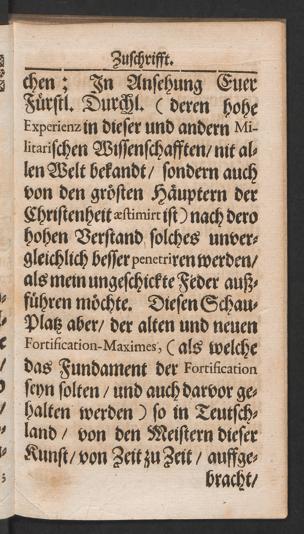 Zuschrifft.
chen; In Ansehung Euer
Fürstl. Durchl. ( deren hohe
Experienz in dieser und andern Mi-
litarischen Wissenschafften/ nit al-
len Welt bekandt/ sondern auch
von den grösten Häuptern der
Christenheit æstimirt ist) nach dero
hohen Verstand solches unver-
gleichlich besser penetriren werden/
als mein ungeschickte Feder auß-
führen möchte. Diesen Schau-
Platz aber/ der alten und neuen
Fortification-Maximes, ( als welche
das Fundament der Fortification
seyn solten / und auch darvor ge-
halten werden ) so in Teutsch-
land / von den Meistern dieser
Kunst/ von Zeit zu Zeit / auffge-
bracht/